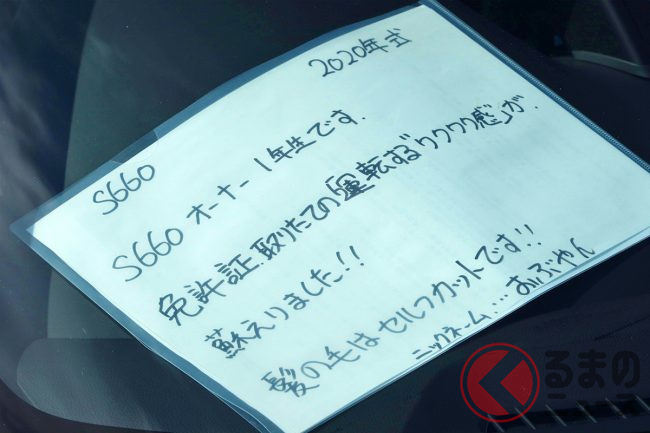 S660
2020年式
S660 オーナー 1年生です.
免許証取りたての「運転する『ワクワク感』」が.
蘇えりました!!
髪の毛はセルフカットです!!
ニックネーム... おぶやん
くるまのニュース